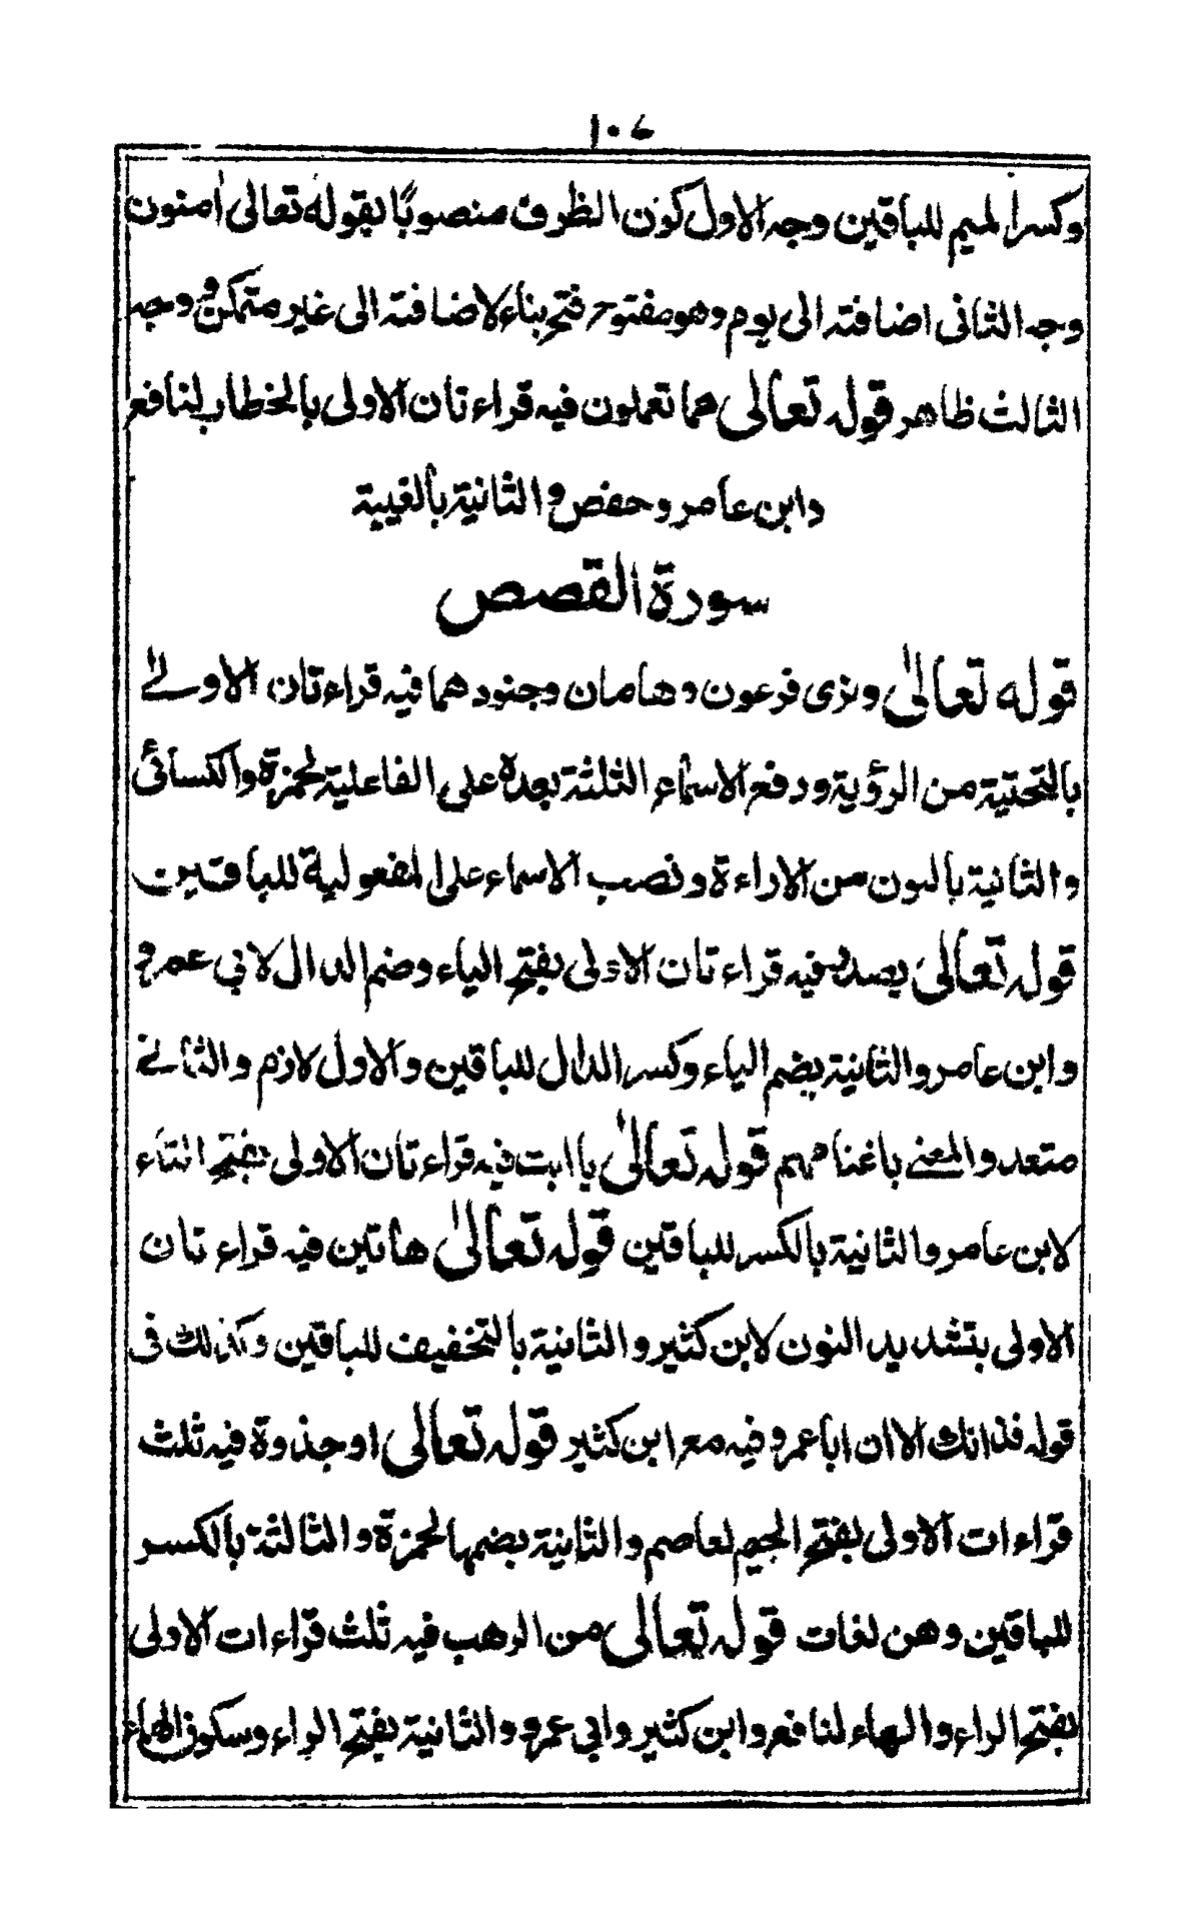 ١٠٧
وكسر الميم للباقين وجه الاول كون الظرف منصوبًا بقوله تعالى اٰمنون
وجه الثانى اضافته الى يوم وهو مفتوح فتح بناء لاضافته الى غير متمكن و وجه
الثالث ظاهر قوله تعالى عما تعملون فيه قراءتان الاولى بالخطاب لنافع
وابن عامر وحفص والثانية بالغيبة
سورة القصص
قوله تعالىٰ ونرى فرعون وهامان وجنودهما فيه قراءتان الاولىٰ
بالتحتية من الرؤية ورفع الاسماء الثلثة بعده على الفاعلية لحمزة والكسائى
والثانية بالنون من الاراءة ونصب الاسماء على المفعولية للباقين
قوله تعالىٰ يصدر فيه قراءتان الاولى بفتح الياء وضم الدال لابى عمرو
وابن عامر والثانية بضم الياء وكسر الدال للباقين والاول لازم والثانى
متعد والمعنى باغنامهم قوله تعالىٰ ياابت فيه قراءتان الاولى بفتح التاء
لابن عامر والثانية بالكسر للباقين قوله تعالىٰ هاتين فيه قراءتان
الاولى بتشديد النون لابن كثير والثانية بالتخفيف للباقين وكذلك فى
قوله فذانك الا ان اباعمرو فيه مع ابن كثير قوله تعالى اوجذوة فيه ثلث
قراءات الاولى بفتح الجيم لعاصم والثانية بضمها لحمزة والثالثة بالكسر
للباقين وهن لغات قوله تعالى من الرهب فيه ثلث قراءات الاولى
بفتح الراء والهاء لنافع وابن كثير وابى عمرو والثانية بفتح الراء وسكون الهاء